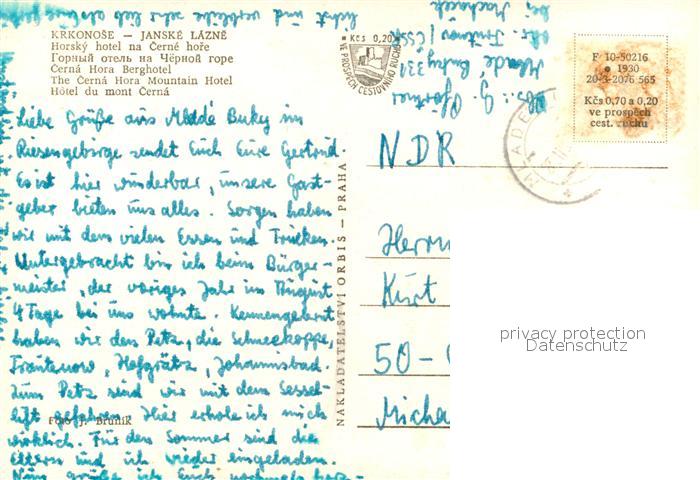 KRKONOŠE — JANSKÉ LÁZNĚ
Horský hotel na Černé hoře
Горный отель на Чёрной горе
Černá Hora Berghotel
The Černá Hora Mountain Hotel
Hôtel du mont Černá
Kčs 0,20
VE PROSPĚCH CESTOVNÍHO RUCHU
F 10-50216
1930
20-3-2076 565
Kčs 0,70 a 0,20
ve prospěch
cest. ruchu
Abs.: G.
Mladé Buky 331
okr. Trutnov / ČSSR
bei
Liebe Grüße aus Mladé Buky im
Riesengebirge sendet Euch Eure Gertrud.
Es ist hier wunderbar, unsere Gast-
geber bieten uns alles. Sorgen haben
wir mit dem vielen Essen und Trinken.
Untergebracht bin ich beim Bürger-
meister, der voriges Jahr im August
4 Tage bei uns wohnte. Kennengelernt
haben wir den Petz, die Schneekoppe,
Trautenau, Johannisbad.
Zum Petz sind wir mit dem Sessel-
lift gefahren. Hier erhole ich mich
wirklich. Für den Sommer sind die
Eltern und ich wieder eingeladen.
Nun grüße ich Euch nochmals herz-
lichst und verbleibe
Foto J. Brunlík
NAKLADATELSTVÍ ORBIS — PRAHA
NDR
Herrn
Kurt
50-
Micha
privacy protection
Datenschutz